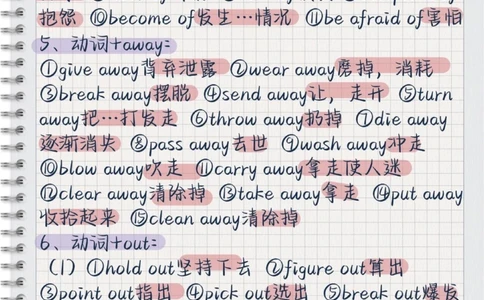 抱怨 ⑩become of发生…情况 ⑪be afraid of害怕
5、动词+away:
①give away背弃泄露 ②wear away磨掉,消耗
③break away摆脱 ④send away让,走开 ⑤turn
away把…打发走 ⑥throw away扔掉 ⑦die away
逐渐消失 ⑧pass away去世 ⑨wash away冲走
⑩blow away吹走 ⑪carry away拿走使人迷
⑫clear away清除掉 ⑬take away拿走 ⑭put away
收拾起来 ⑮clean away清除掉
6、动词+out:
(1)①hold out坚持下去 ②figure out算出
③point out指出 ④pick out选出 ⑤break out爆发